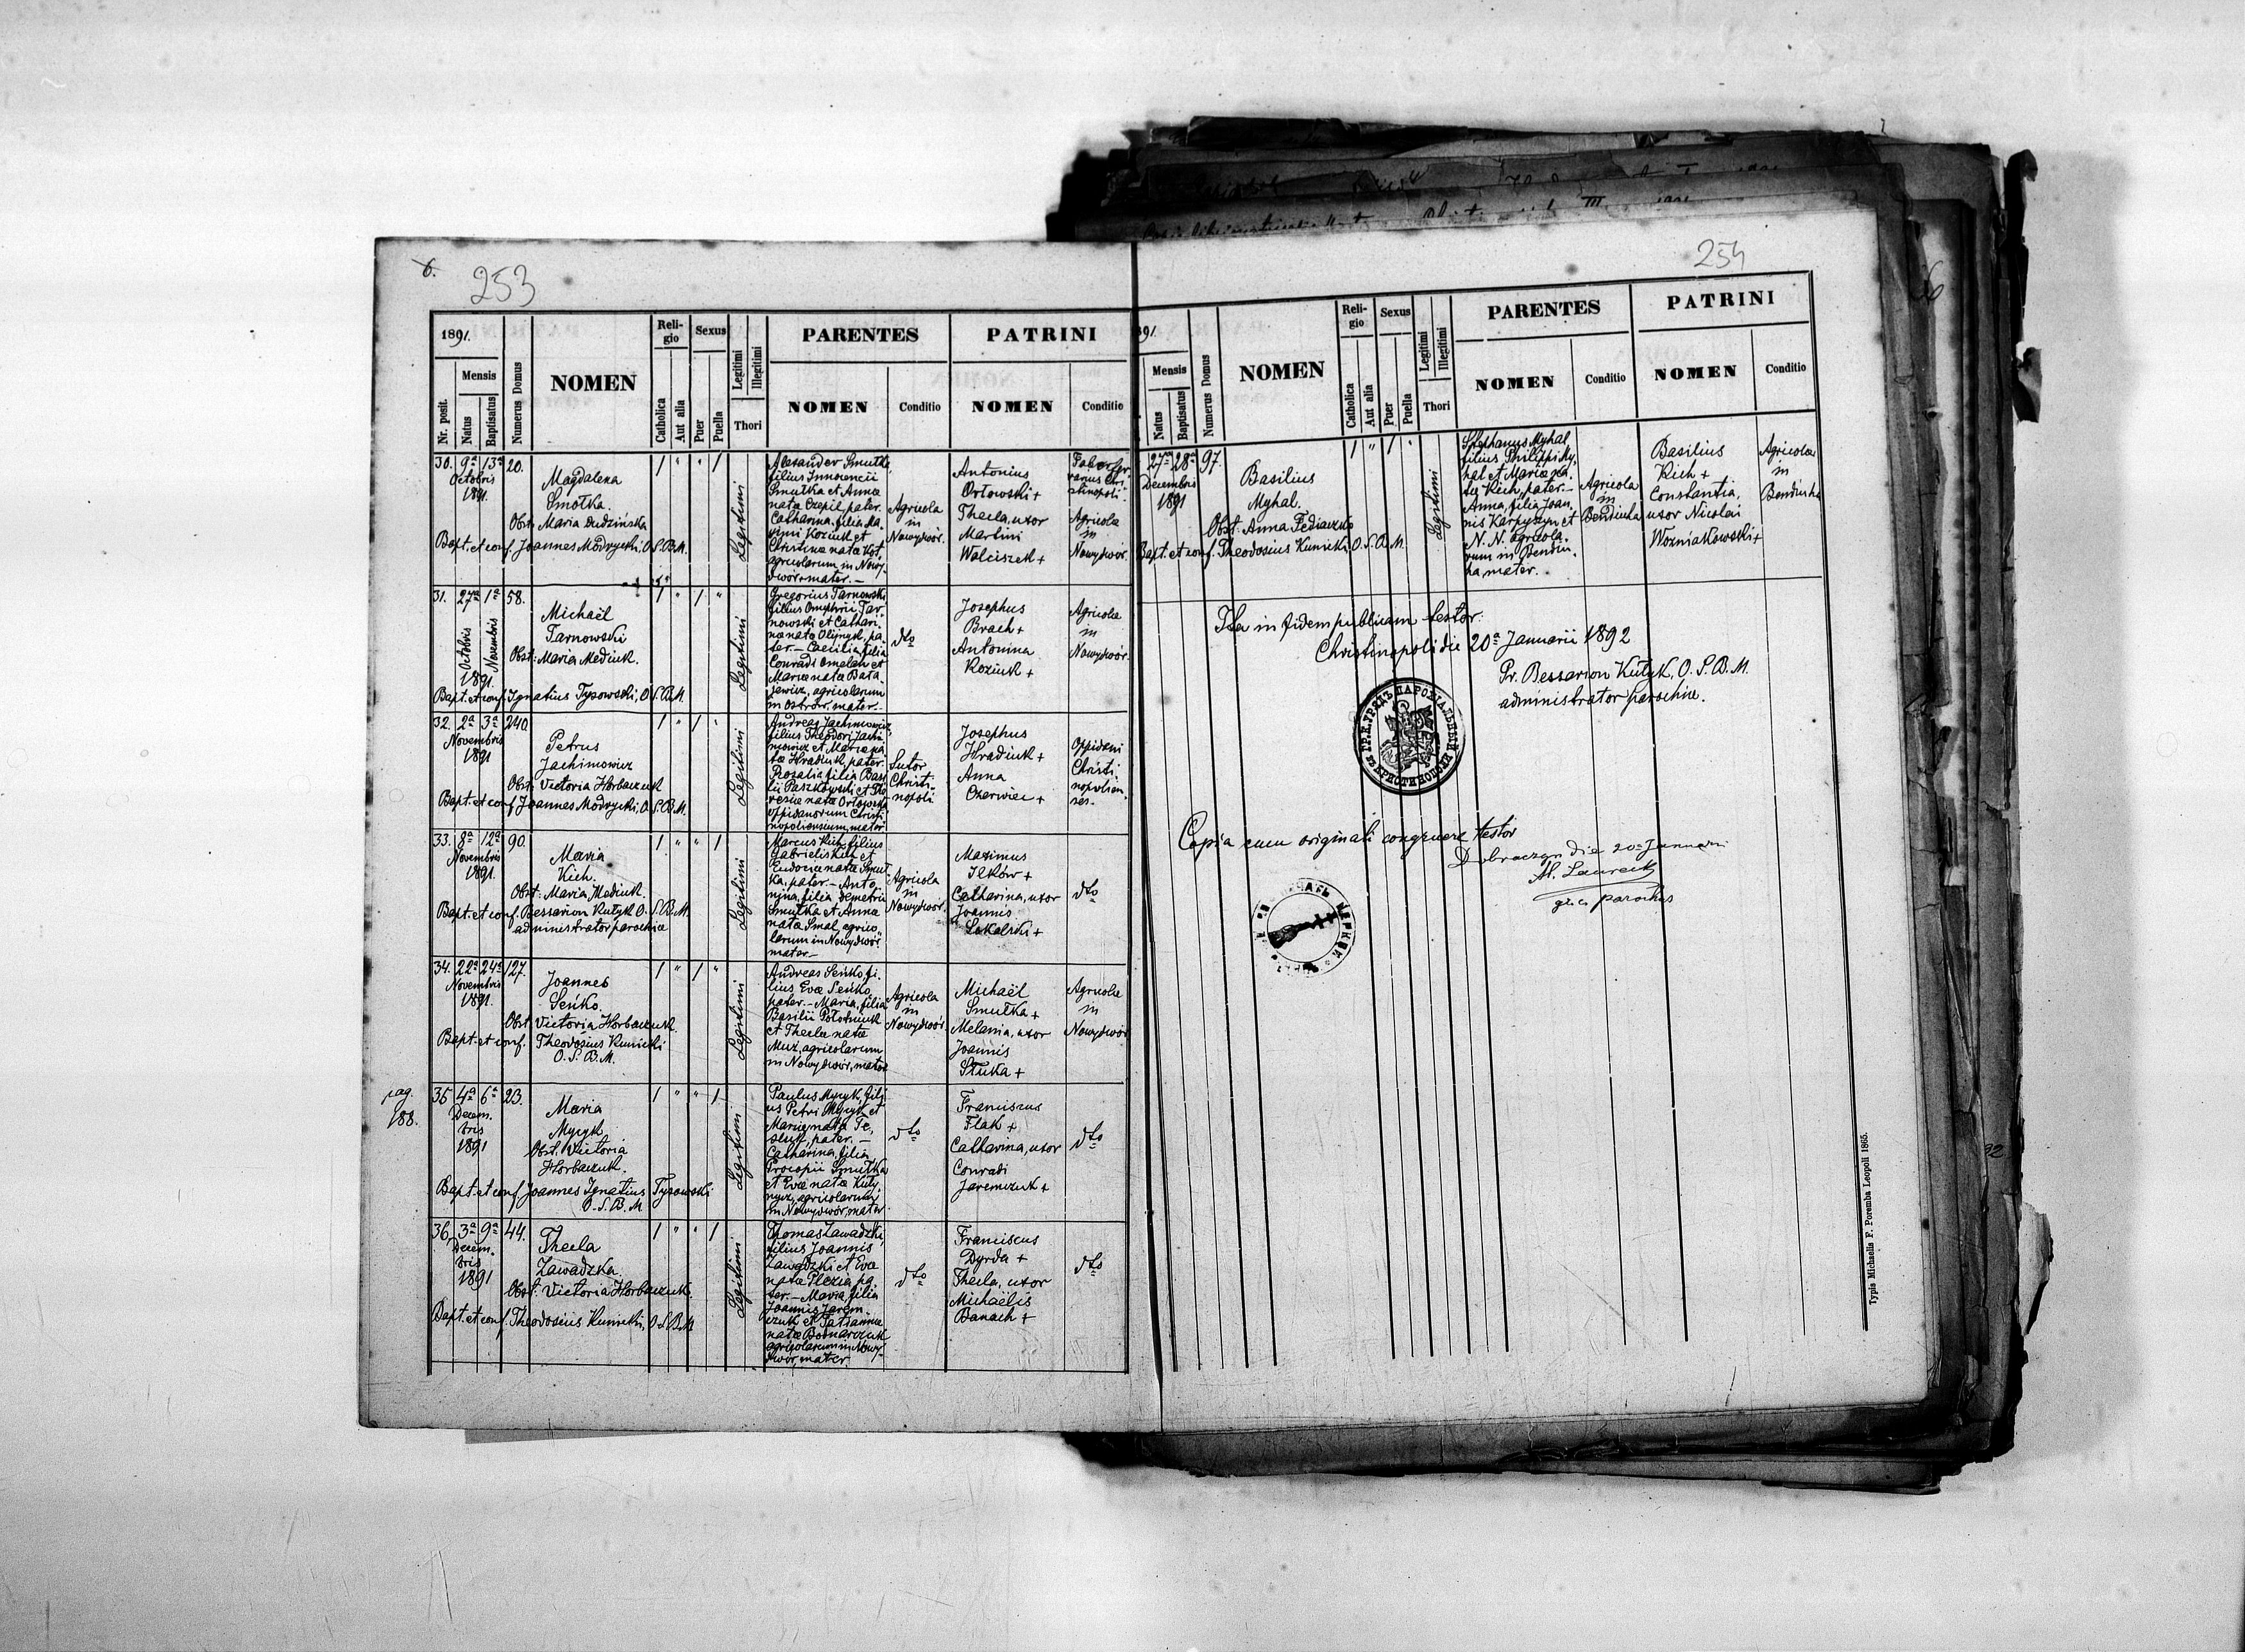 6.
253
1891.
Mensis
Nr. posit.
Natus
Baptisatus
Numerus Domus
NOMEN
Reli-
gio
Catholica
Aut alia
Sexus
Puer
Puella
Legitimi
Illegitimi
Thori
PARENTES
NOMEN
Conditio
PATRINI
NOMEN
Conditio
30. 9ª 13ª 20.
Octobris
1891.
Magdalena
Smotka.
Obst. Maria Dudzińska
Bapt. et conf. Joannes Modrycki, O.S.B.M.
1 " " 1
Legitimi
Alexander Smutka,
filius Innocencii
Smutka et Annæ
natæ Czepil, pater.
Catharina, filia Ma-
Koziuk et
Christinæ natæ Kot,
agricolarum in Nowy-
dwór, mater. –
Agricola
in
Nowydwór.
Antonius
Orłowski +
Thecla, uxor
Martini
Walciszek +
Agricola
in
Nowydwór.
31. 27ª 1ª 58.
Octobris
Novembris
1891.
Michaël
Tarnowski
Obst: Maria Mediuk.
Bapt. et conf. Ignatius Tysowski, O.S.B.M.
1 " 1 "
Legitimi
Gregorius Tarnowski
filius Onuphrii Tar-
nowski et Cathari-
næ natæ Olijnyk, pa-
ter. – Caecilia, filia
Conradi Omelan et
Mariæ natæ Bata-
jewicz, agricolarum
in Ostrów, mater. –
dto
Josephus
Brach +
Antonina
Koziuk +
Agricolæ
in
Nowydwór.
32. 2ª 3ª 240.
Novembris
1891
Petrus
Jachimowicz
Obst: Victoria Horbaczuk
Bapt. et conf. Joannes Modrycki, O.S.B.M.
1 " 1 "
Legitimi
Andreas Jachimowicz,
filius Theodori Jachi-
mowicz et Mariæ na-
tæ Hradiuk, pater.
Rosalia filia Basi-
lii Paszkowski et The-
resiæ natæ Orłowska
oppidanorum Christi-
nopoliensium, mater
Sutor
Christi-
nopoli
Josephus
Hradiuk +
Anna
Czerwiec +
Oppidani
Christi-
nopolien-
ses.
33. 8ª 12ª 90.
Novembris
1891.
Maria
Kich.
Obst: Maria Mediuk.
Bapt. et conf. Bessarion Kutyk O.S.B.M.
administrator parochiæ
1 " " 1
Legitimi
Marcus Kich, filius
Gabrielis Kich et
Eudociæ natæ Smut-
ka, pater. – Anto-
nina, filia Demetrii
Smutka et Annæ
natæ Smal, agrico-
larum in Nowydwór
mater –
Agricola
in
Nowydwór.
Maximus
Ilków +
Catharina, uxor
Joannis
Sokalski +
dto
34. 22ª 24ª 127.
Novembris
1891.
Joannes
Seńko.
Obst. Victoria Horbaczuk.
Bapt. et conf. Theodosius Kunicki
O.S.B.M.
1 " 1 "
Legitimi
Andreas Seńko, fi-
lius Evæ Seńko,
pater. – Maria, filia
Basilii Połotniuk
et Theclæ natæ
Muz, agricolarum
in Nowydwór, mater
Agricola
in
Nowydwór.
Michaël
Smutka +
Melania, uxor
Joannis
Stuka +
Agricolæ
in
Nowydwór
pag.
188.
35 4ª 6ª 23.
Decem.
bris
1891
Maria
Mycyk
Obst. Victoria
Horbaczuk.
Bapt. et conf. Joannes Ignatius Tysowski
O.S.B.M
1 " " 1
Legitimi
Paulus Mycyk, fili-
us Petri Mycyk et
Mariæ natæ
pater. –
Catharina, filia
Procopii Smutka
et Evæ natæ
agricolarum
in Nowydwór, mater
dto
Franciscus
Flak +
Catharina, uxor
Conradi
Jaremczuk +
dto
36. 3ª 9ª 44.
Decem.
bris
1891
Thecla
Zawadzka.
Obst: Victoria Horbaczuk.
Bapt. et conf. Theodosius Kunicki, O.S.B.M
1 " " 1
Legitimi
Thomas Zawadzki,
filius Joannis
Zawadzki et Evæ
natæ Plezia, pa-
ter. – Maria, filia
Joannis Jarem-
czuk et Tatiannæ
natæ Bodnarczuk
agricolarum in Nowy-
dwór, mater.
dto
Franciscus
Dyrda +
Thecla, uxor
Michaëlis
Banach +
dto
254
91.
Mensis
Natus
Baptisatus
Numerus Domus
NOMEN
Reli-
gio
Catholica
Aut alia
Sexus
Puer
Puella
Legitimi
Illegitimi
Thori
PARENTES
NOMEN
Conditio
PATRINI
NOMEN
Conditio
27ª 28ª 97.
Decembris
1891
Basilius
Myhal.
Obst: Anna Fediaczko
Bapt. et conf. Theodosius Kunicki O.S.B.M.
1 " 1 "
Legitimi
Stephanus Myhal,
filius Philippi My-
hal et Mariæ na-
tæ Kich, pater. –
Anna, filia Joan-
nis Karpyszyn et
N. N. agricola-
rum in Bendiu-
ha, mater.
Agricola
in
Bendiuha
Basilius
Kich +
Constantia,
uxor Nicolai
Wozniakowski +
Agricolæ
in
Bendiuha
Ita in fidem publicam testor.
Christinopoli die 20ª Januarii 1892
Pr. Bessarion Kutyk, O.S.B.M.
administrator parochiæ.
ГР. К. УРЯДЪ ПАРОХІАЛЬНЫЙ
въ КРИСТИНОПОЛИ
Copia cum originali congruere testor
Dobraczyn die 20 Januarii
gr. c. parochus
Typis Michaelis F. Poremba Leopoli 1865.